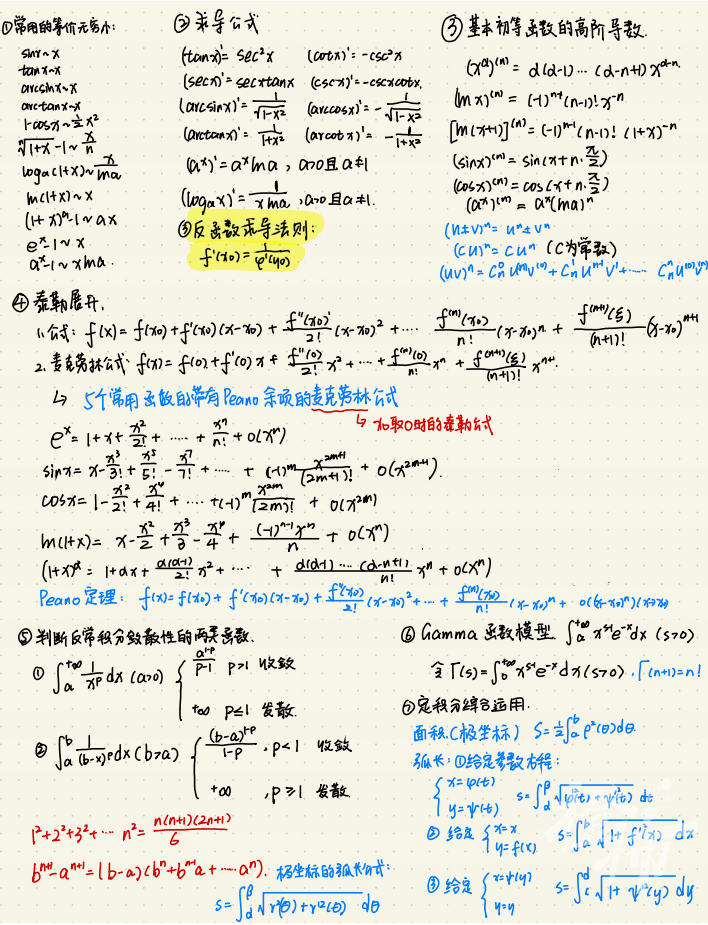 ①常用的等价无穷小:
sinx~x
tanx~x
arcsinx~x
arctanx~x
1-cosx~½x²
ⁿ√(1+x)-1~x/n
logₐ(1+x)~x/lna
ln(1+x)~x
(1+x)ᵅ-1~αx
eˣ-1~x
aˣ-1~xlna.
②求导公式
(tanx)'=sec²x (cotx)'=-csc²x
(secx)'=secxtanx (cscx)'=-cscxcotx.
(arcsinx)'=1/√(1-x²) (arccosx)'=-1/√(1-x²)
(arctanx)'=1/(1+x²) (arcotx)'=-1/(1+x²)
(aˣ)'=aˣlna, a>0且a≠1
(logₐx)'=1/(xlna), a>0且a≠1.
③反函数求导法则:
f'(x₀)=1/φ'(y₀)
③基本初等函数的高阶导数.
(xᵅ)⁽ⁿ⁾=α(α-1)…(α-n+1)xᵅ⁻ⁿ.
(lnx)⁽ⁿ⁾=(-1)ⁿ⁻¹(n-1)!x⁻ⁿ
[ln(x+1)]⁽ⁿ⁾=(-1)ⁿ⁻¹(n-1)!(1+x)⁻ⁿ
(sinx)⁽ⁿ⁾=sin(x+n·π/2)
(cosx)⁽ⁿ⁾=cos(x+n·π/2)
(aˣ)⁽ⁿ⁾=aˣ(lna)ⁿ
(u±v)ⁿ=uⁿ±vⁿ
(Cu)ⁿ=Cuⁿ (C为常数)
(uv)ⁿ=Cₙ⁰u⁽ⁿ⁾v⁽⁰⁾+Cₙ¹uⁿ⁻¹v¹+…… Cₙⁿu⁽⁰⁾v⁽ⁿ⁾
④泰勒展开.
1.公式: f(x)=f(x₀)+f'(x₀)(x-x₀)+f''(x₀)/2!(x-x₀)²+…. f⁽ⁿ⁾(x₀)/n!(x-x₀)ⁿ+f⁽ⁿ⁺¹⁾(ξ)/(n+1)!(x-x₀)ⁿ⁺¹
2.麦克劳林公式: f(x)=f(0)+f'(0)x+f''(0)/2!x²+…+f⁽ⁿ⁾(0)/n!xⁿ+f⁽ⁿ⁺¹⁾(ξ)/(n+1)!xⁿ⁺¹.
↳ 5个常用函数的带有Peano余项的麦克劳林公式
↳ x₀取0时的泰勒公式
eˣ=1+x+x²/2!+……+xⁿ/n!+o(xⁿ)
sinx=x-x³/3!+x⁵/5!-x⁷/7!+……+(-1)ᵐx²ᵐ⁺¹/(2m+1)!+o(x²ᵐ⁺¹).
cosx=1-x²/2!+x⁴/4!+……+(-1)ᵐx²ᵐ/(2m)!+o(x²ᵐ)
ln(1+x)=x-x²/2+x³/3-x⁴/4+(-1)ⁿ⁻¹xⁿ/n+o(xⁿ)
(1+x)ᵅ=1+αx+α(α-1)/2!x²+……+α(α-1)……(α-n+1)/n!xⁿ+o(xⁿ)
Peano定理: f(x)=f(x₀)+f'(x₀)(x-x₀)+f''(x₀)/2!(x-x₀)²+…+f⁽ⁿ⁾(x₀)/n!(x-x₀)ⁿ+o((x-x₀)ⁿ)(x→x₀)
⑤判断反常积分敛散性的两类函数.
① ∫ₐ⁺∞ 1/xᵖ dx (a>0) { a¹⁻ᵖ/(p-1) p>1 收敛
+∞ p≤1 发散.
② ∫ₐᵇ 1/(b-x)ᵖ dx (b>a) { (b-a)¹⁻ᵖ/(1-p), p<1 收敛
+∞, p≥1 发散
1²+2²+3²+… n²=n(n+1)(2n+1)/6
bⁿ⁺¹-aⁿ⁺¹=(b-a)(bⁿ+bⁿ⁻¹a+……aⁿ).
极坐标的弧长公式:
s=∫_α^β √(r²(θ)+r'²(θ)) dθ
⑥Gamma函数模型. ∫ₐ⁺∞ xˢ⁻¹e⁻ˣdx (s>0)
令Γ(s)=∫₀⁺∞ xˢ⁻¹e⁻ˣdx(s>0). Γ(n+1)=n!
⑦定积分综合运用.
面积.(极坐标) S=½∫ₐᵇρ²(θ)dθ.
弧长: ①给定参数方程:
{ x=φ(t) y=ψ(t) s=∫_α^β √(φ'²(t)+ψ'²(t)) dt
② 给定 { x=x y=f(x) S=∫ₐᵇ √(1+f'²(x)) dx
③ 给定 { x=ψ(y) y=y S=∫_c^d √(1+ψ'²(y)) dy